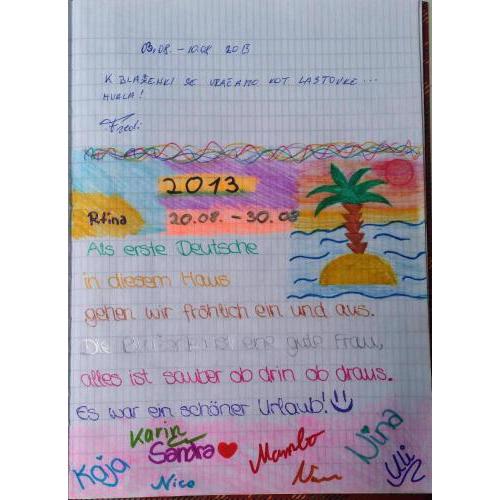 03.08. - 10.08 2013
K BLAŽENKI SE VRAČAMO KOT LASTOVKE...
HVALA!
Fredi
2013
Rtina 20.08. - 30.08
Als erste Deutsche
in diesem Haus
gehen wir fröhlich ein und aus.
Die ist eine gute Frau,
alles ist sauber ob drin ob draus.
Es war ein schöner Urlaub!
Karin
Sandra
Mambo
Nina
Kaja
Nico
Uli